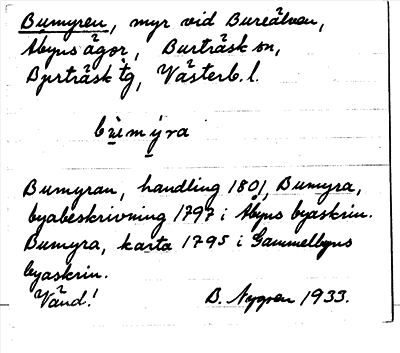 Bumyren, myr vid Bureälven,
Åbyns ägor, Burträsk sn,
Burträsk tg, Västerb. l.
bu̠m y̠ra
Bumyran, handling 1801, Bumyra,
byabeskrivning 1797 i Åbyns byaskrin.
Bumyra, karta 1795 i Gammelbyns
byaskrin.
Vänd! B. Nygren 1933.